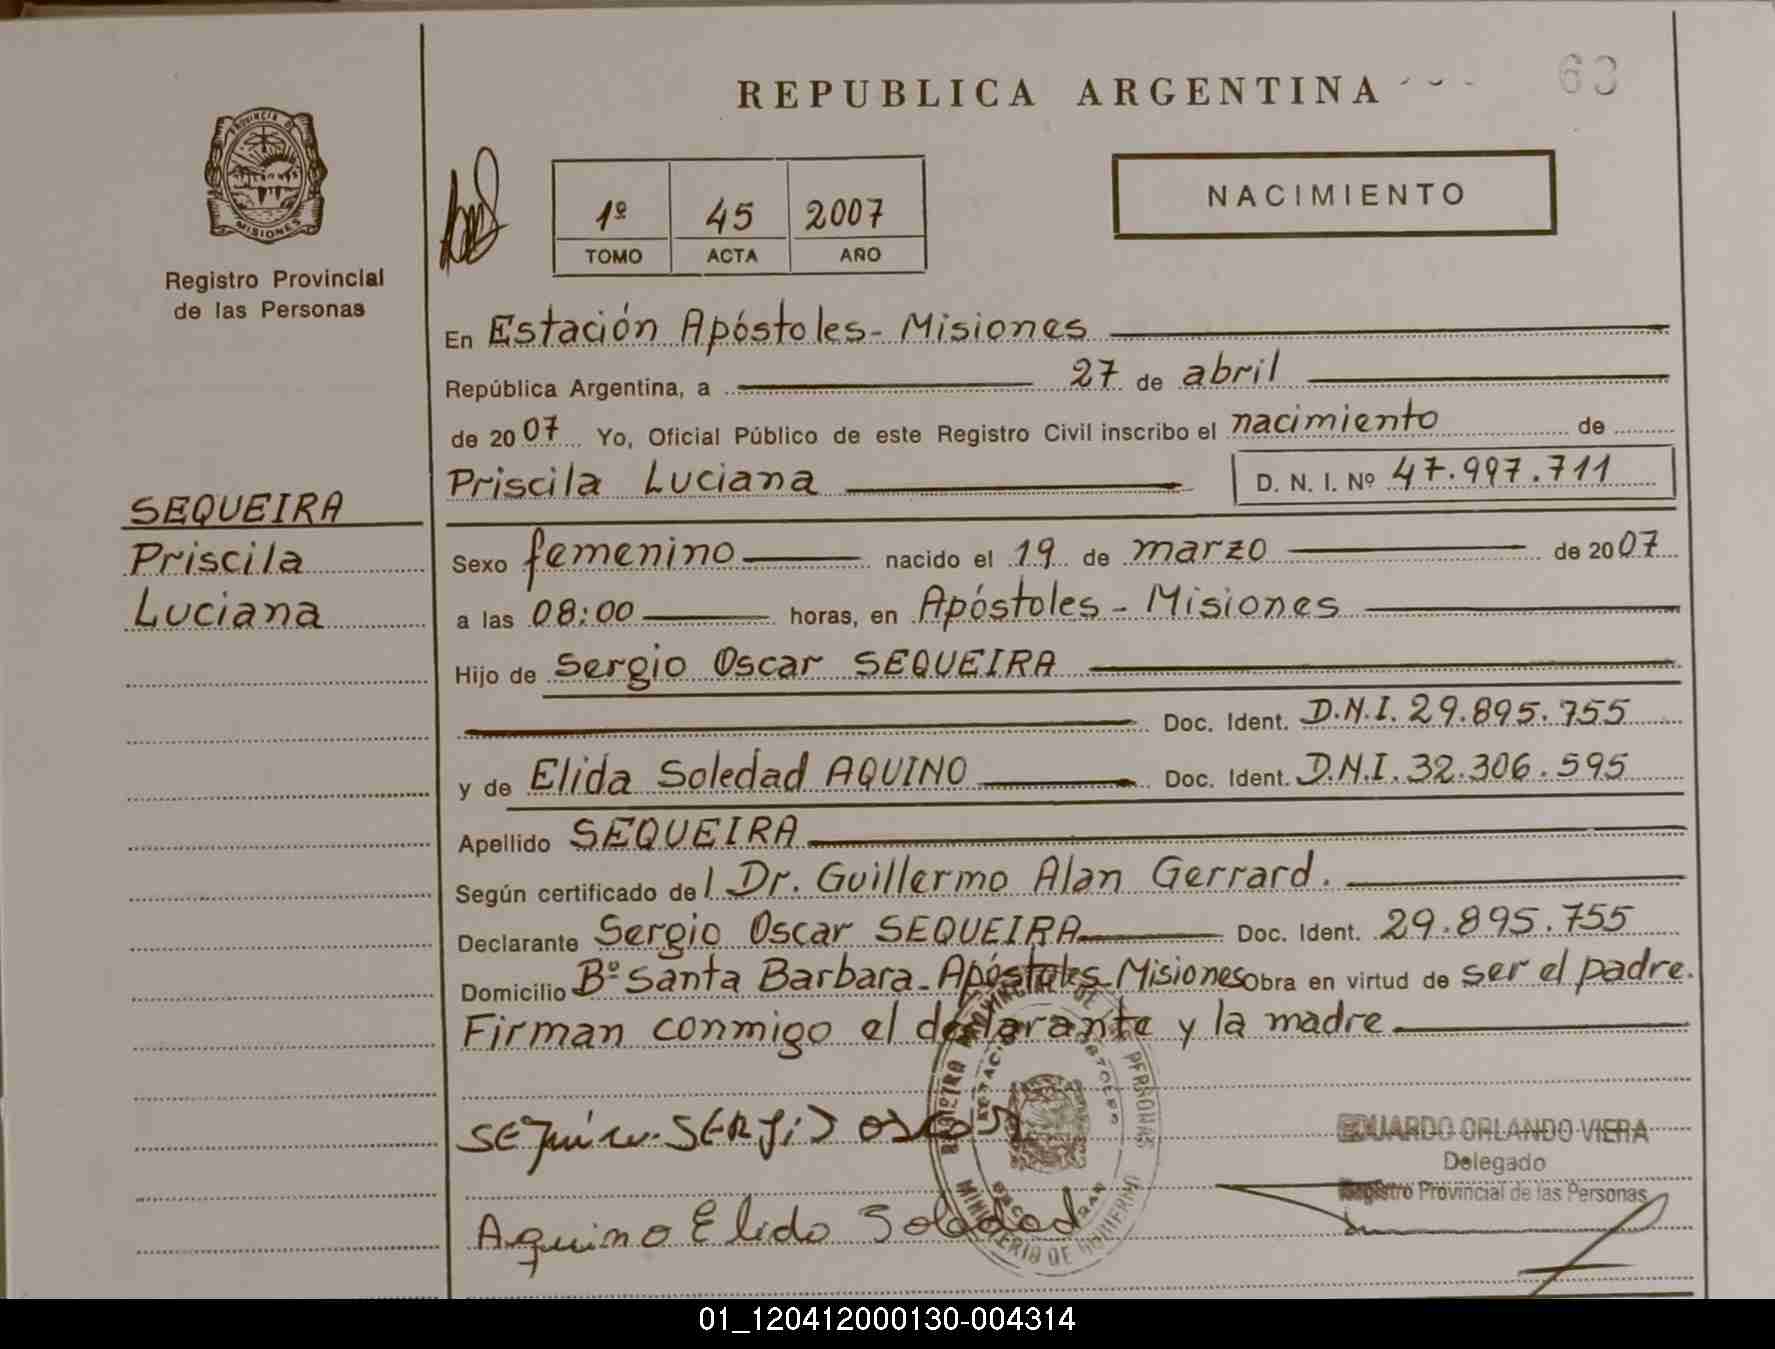 REPUBLICA ARGENTINA
63
PROVINCIA DE
MISIONES
Registro Provincial
de las Personas
1º 45 2007
TOMO ACTA AÑO
NACIMIENTO
En Estación Apóstoles - Misiones
República Argentina, a 27 de abril
de 2007 Yo, Oficial Público de este Registro Civil inscribo el nacimiento de
Priscila Luciana D. N. I. Nº 47.997.711
SEQUEIRA
Priscila
Luciana
Sexo femenino nacido el 19 de marzo de 2007
a las 08:00 horas, en Apóstoles - Misiones
Hijo de Sergio Oscar SEQUEIRA
Doc. Ident. D.N.I. 29.895.755
y de Elida Soledad AQUINO Doc. Ident. D.N.I. 32.306.595
Apellido SEQUEIRA
Según certificado del Dr. Guillermo Alan Gerrard.
Declarante Sergio Oscar SEQUEIRA Doc. Ident. 29.895.755
Domicilio Bº Santa Barbara - Apóstoles - Misiones Obra en virtud de ser el padre.
Firman conmigo el declarante y la madre
SERGIO
EDUARDO ORLANDO VIERA
Delegado
Registro Provincial de las Personas
Aquino Elida Soledad
PERSONAS
MINISTERIO DE GOBIERNO
01_120412000130-004314